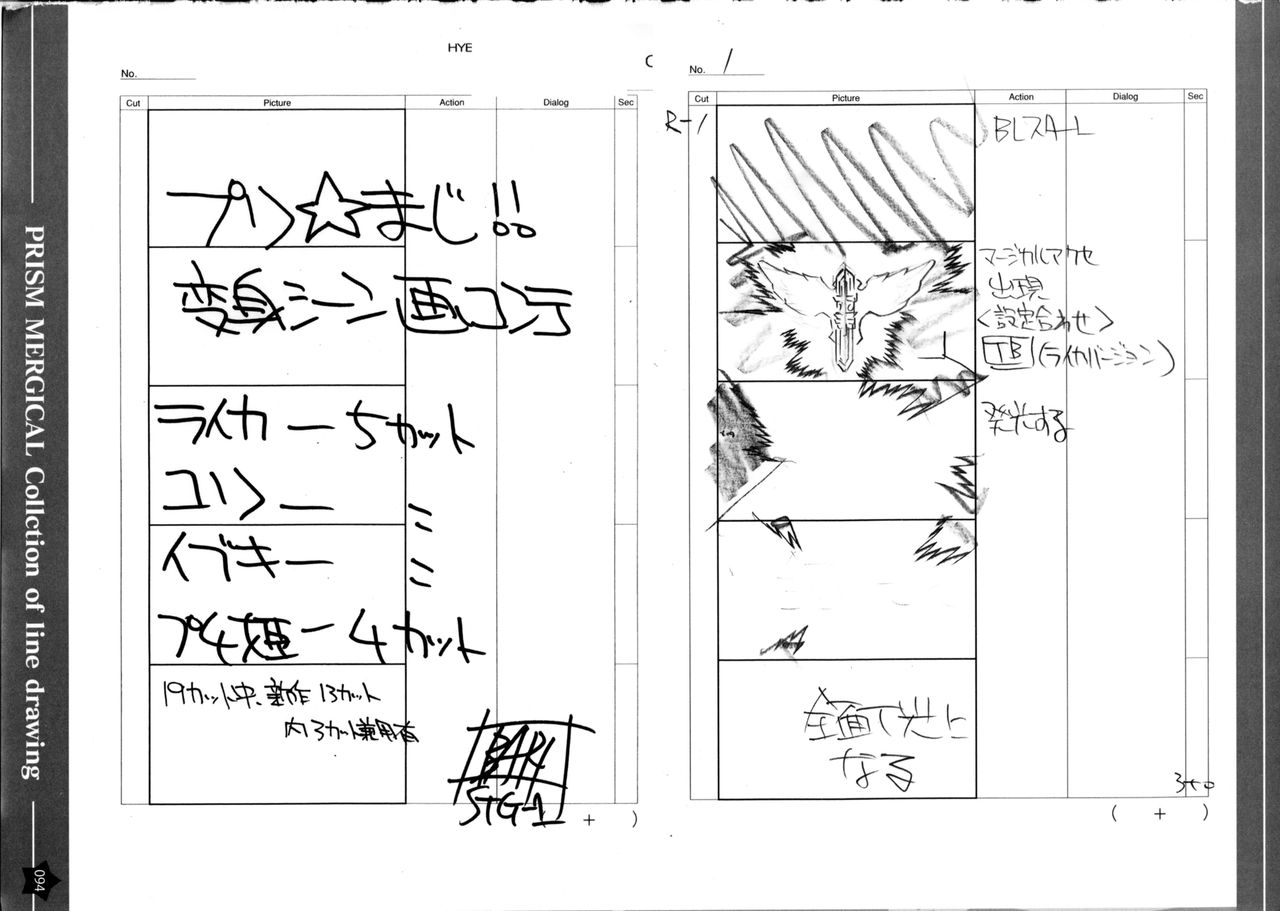 HYE
No.
Cut Picture Action Dialog Sec
プリ☆まじ!!
変身シーン画コンテ
ライカ ー 5カット
ユリン ー 〃
イブキ ー 〃
プチ姫 ー 4カット
19カット中、新作13カット
内13カット兼用有
BARI
STG-1
+ )
No. 1
Cut Picture Action Dialog Sec
R-1
BLスタート
マージカルアクセ
出現
<設定合わせ>
TB (ライカバージョン)
発光する
全面で光に
なる
3+0
( + )
PRISM MERGICAL Collction of line drawing
094